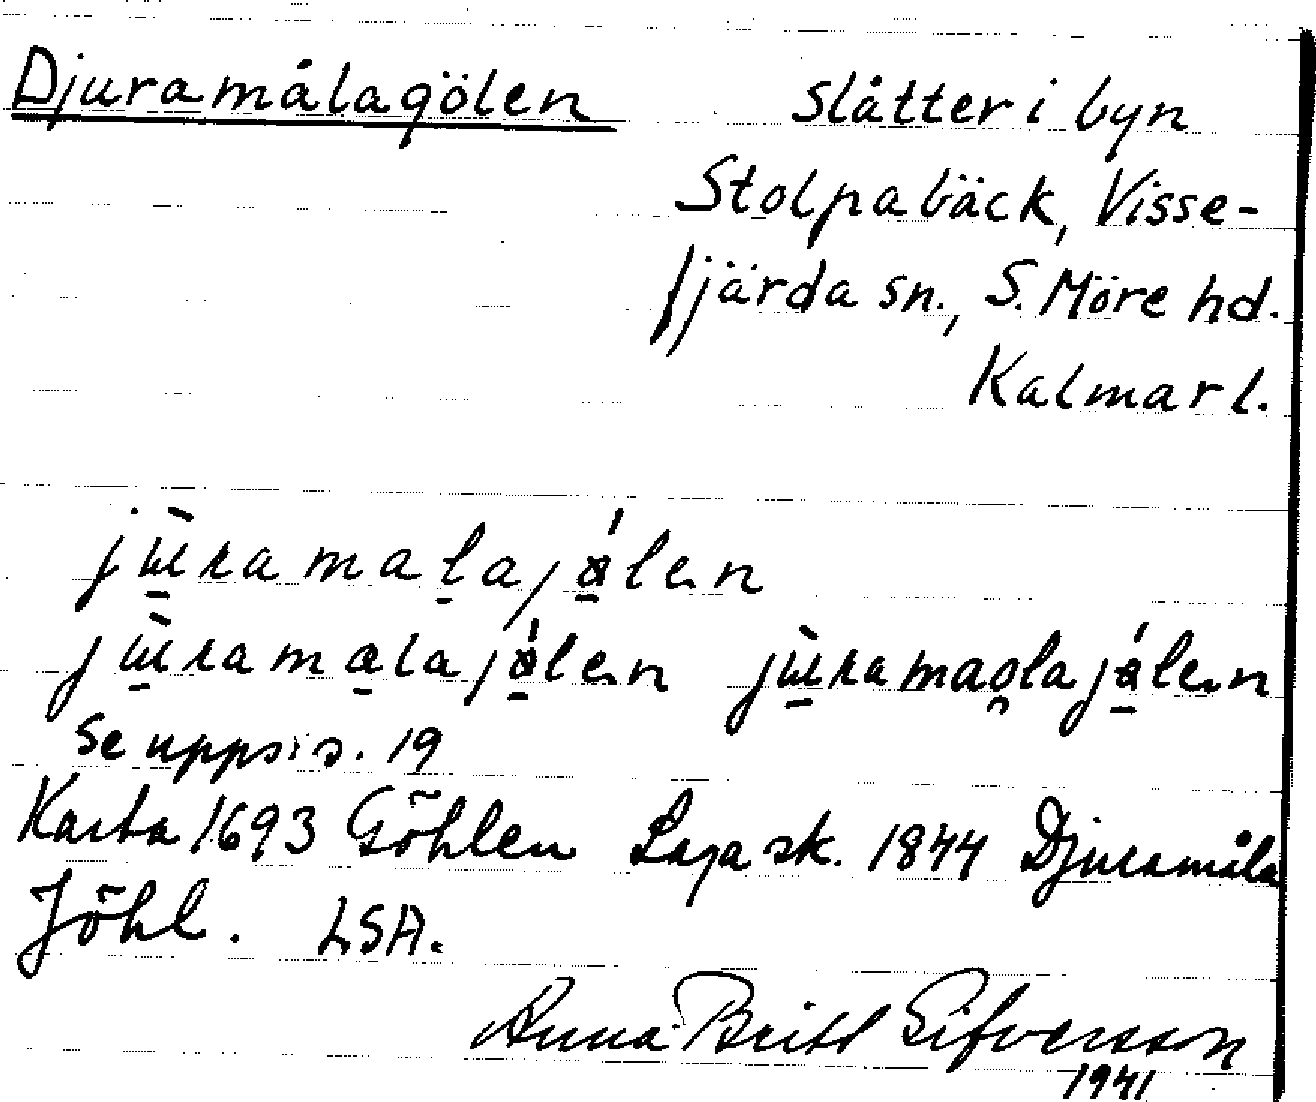 Djuramålagölen Slåtter i byn
Stolpabäck, Visse-
fjärda sn., S. Möre hd.
Kalmar l.
jùramalajálen
jùramalajálen jùramaolajálen
Se upps. s. 19
Karta 1693 Göhlen Laga sk. 1844 Djuramåla
Jöhl. LSA.
Anna Britt Sifversson
1941